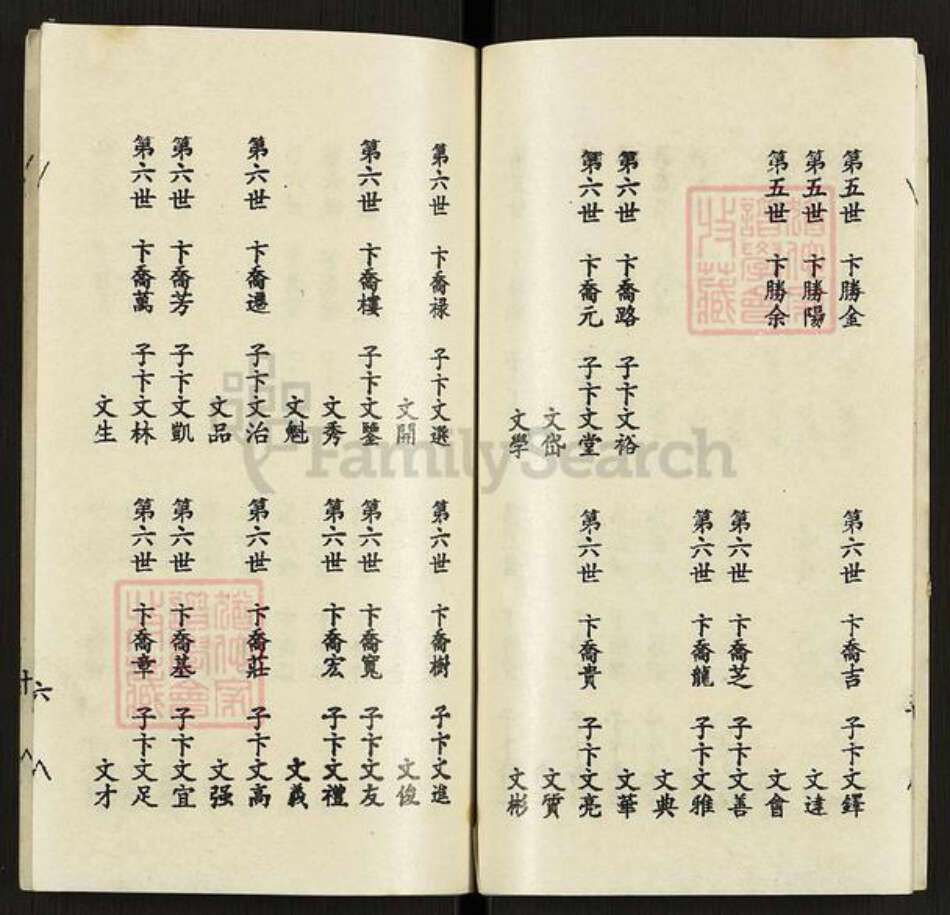 第五世 卞勝金
第五世 卞勝陽
第五世 卞勝余
第六世 卞喬路 子卞文裕
第六世 卞喬元 子卞文堂
文岱
文學
第六世 卞喬吉 子卞文鐸
文達
文會
第六世 卞喬芝 子卞文善
第六世 卞喬龍 子卞文雅
文典
文華
第六世 卞喬貴 子卞文亮
文質
文彬
第六世 卞喬祿 子卞文選
文開
第六世 卞喬樓 子卞文鑒
文秀
文魁
第六世 卞喬遷 子卞文治
文品
第六世 卞喬芳 子卞文凱
第六世 卞喬萬 子卞文林
文生
第六世 卞喬樹 子卞文進
文俊
第六世 卞喬寬 子卞文友
第六世 卞喬宏 子卞文禮
文義
第六世 卞喬莊 子卞文高
文强
第六世 卞喬基 子卞文宜
第六世 卞喬章 子卞文足
文才
FamilySearch